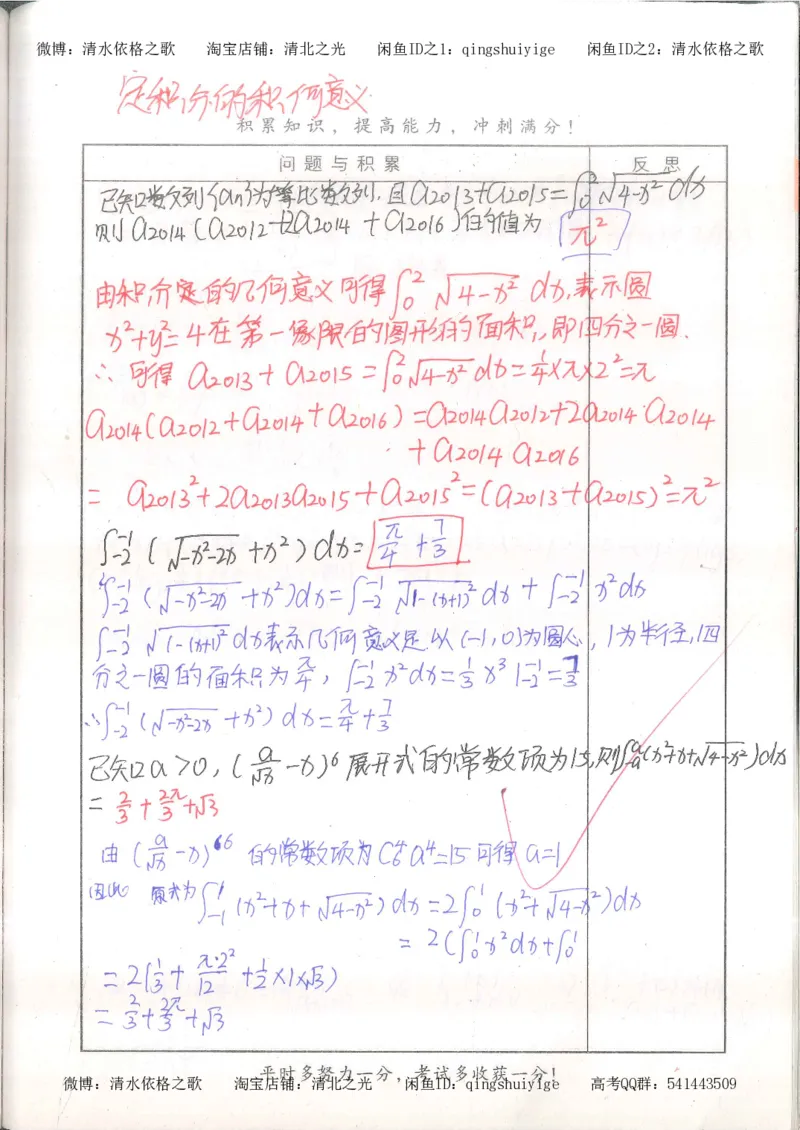 微博：清水依格之歌 淘宝店铺：清北之光 闲鱼ID之1：qingshuiyige 闲鱼ID之2：清水依格之歌
定积分的积何意义
积累知识，提高能力，冲刺满分！
问题与积累 反思
已知数列{an}为等比数列，且a2013+a2015=∫₀²√(4-x²) dx
则a2014(a2012+2a2014+a2016)的值为 π²
由积分定的几何意义可得∫₀²√(4-x²) dx，表示圆
x²+y²=4在第一象限的图形的面积，即四分之一圆.
∴可得 a2013+a2015=∫₀²√(4-x²) dx=¼×π×2²=π
a2014(a2012+a2014+a2016)=a2014a2012+2a2014·a2014
+a2014 a2016
= a2013²+2a2013a2015+a2015²=(a2013+a2015)²=π²
∫₋₂⁻¹(√(-x²-2x)+x²)dx= π/4+7/3
∫₋₂⁻¹(√(-x²-2x)+x²)dx=∫₋₂⁻¹√(1-(x+1)²)dx+∫₋₂⁻¹x²dx
∫₋₂⁻¹√(1-(x+1)²)dx表示几何意义是以(-1,0)为圆心，1为半径，四
分之一圆的面积为π/4，∫₋₂⁻¹x²dx=⅓x³|₋₂⁻¹=7/3
∴∫₋₂⁻¹(√(-x²-2x)+x²)dx=π/4+7/3
已知a>0，(a/√x-x)⁶展开式的常数项为15，则∫₋ₐᵃ(x²+x+√(4-x²))dx
=2/3+2π/3+√3
由(a/√x-x)⁶⁶的常数项为C₆⁴a⁴=15可得a=1
因此 原式为∫₋₁¹(x²+x+√(4-x²))dx=2∫₀¹(x²+√(4-x²))dx
=2(∫₀¹x²dx+∫₀¹
=2(1/3+π·2²/12+½×1×√3)
=2/3+2π/3+√3
平时多努力一分，考试多收获一分！
微博：清水依格之歌 淘宝店铺：清北之光 闲鱼ID：qingshuiyige 高考QQ群：541443509